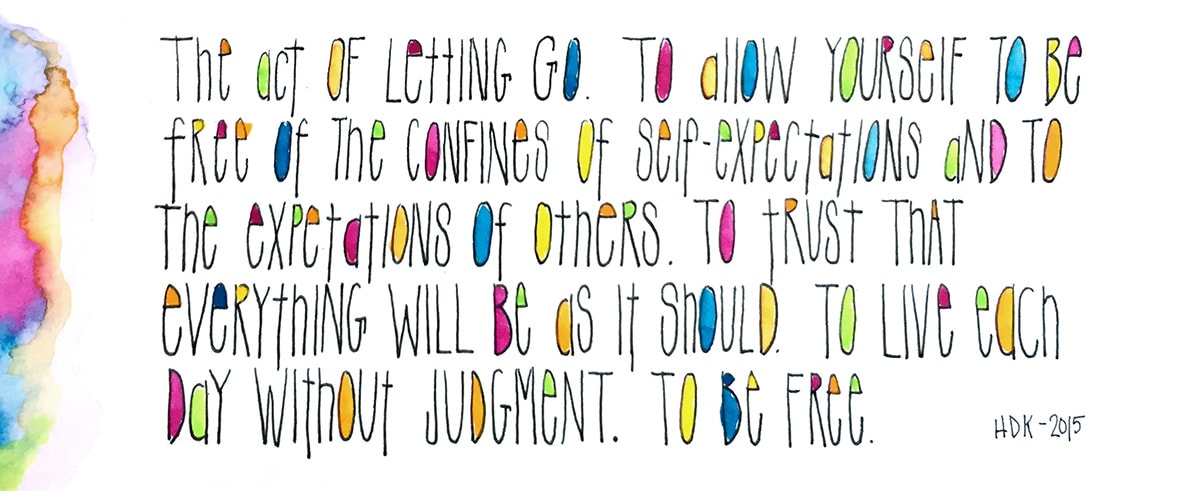 The act OF LettING GO. TO allOW YOURSelF TO Be
fRee Of The CONFINeS Of Self-expectatIONS aND TO
The expetatIONS Of OtheRS. TO tRUSt ThAT
eveRYthING WILL Be aS It ShOULD. TO LIVe each
DaY WIthOUt JUDGMeNT. TO Be FRee.
HDK-2015